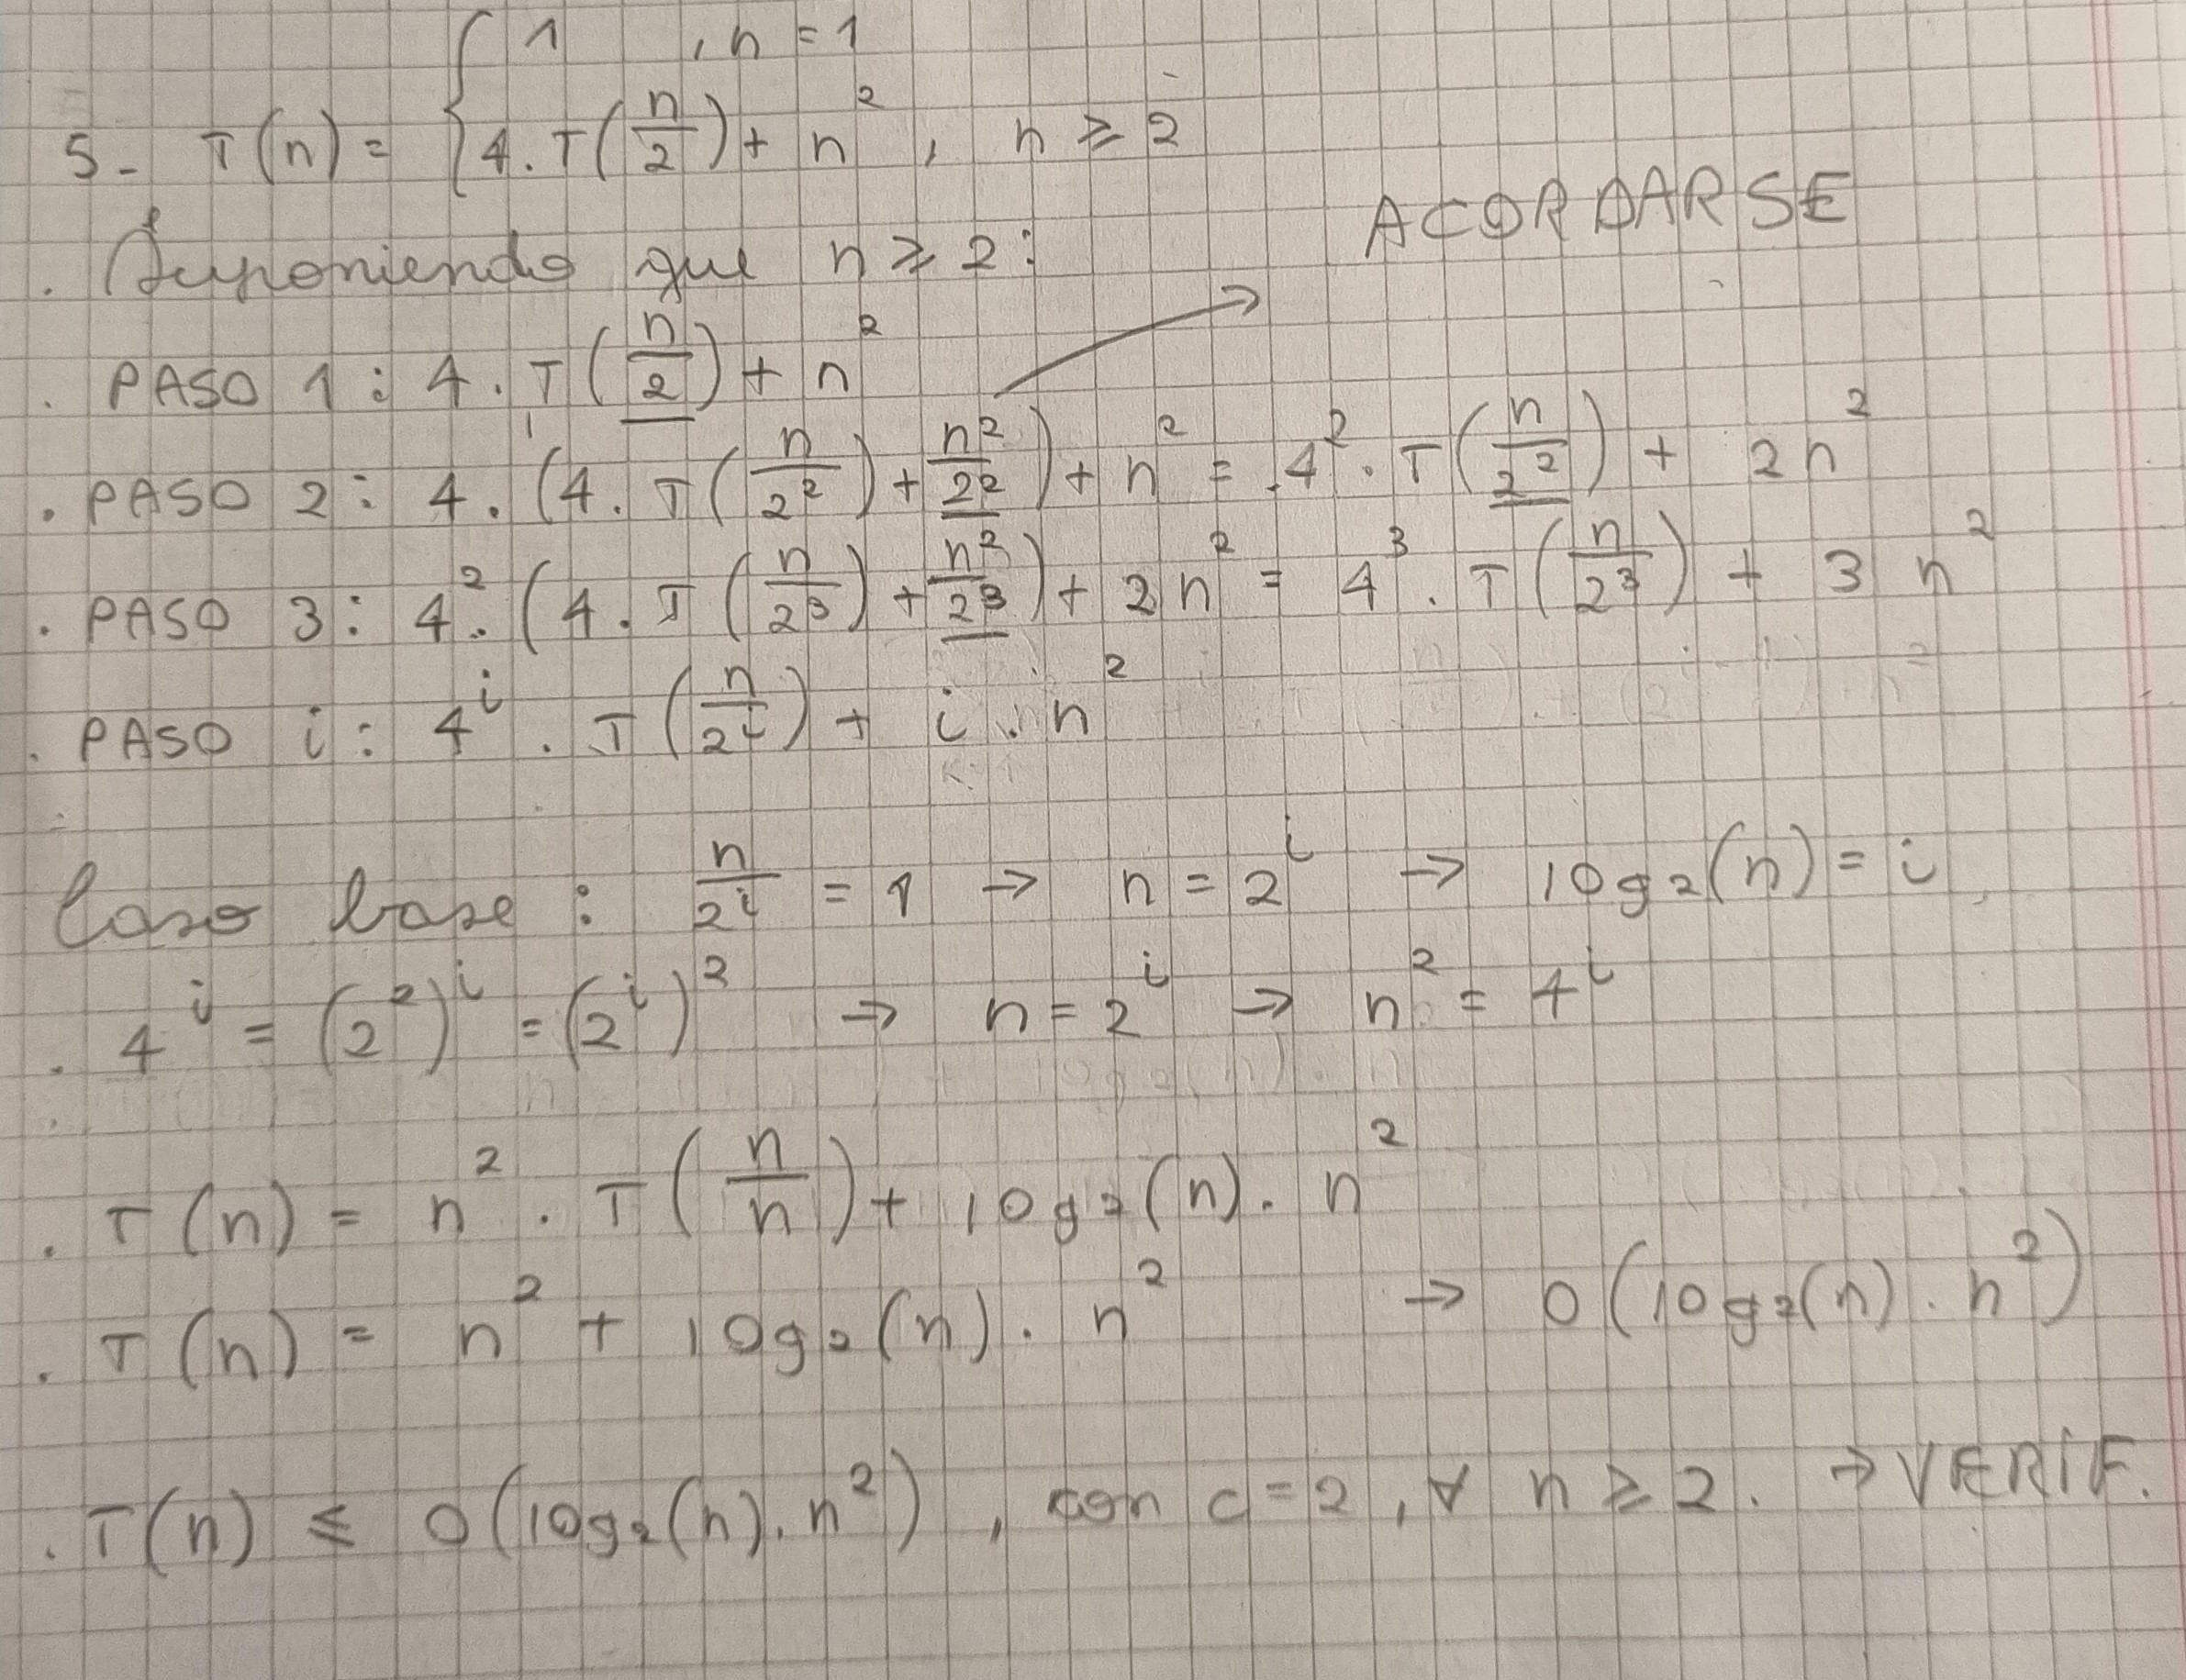 5- T(n) = { 1 , n = 1
4.T(n/2) + n² , n ≥ 2
ACORDARSE
. Suponiendo que n ≥ 2:
. PASO 1 : 4. T(n/2) + n²
. PASO 2 : 4. (4. T(n/2²) + n²/2²) + n² = 4² . T(n/2²) + 2n²
. PASO 3 : 4². (4. T(n/2³) + n²/2³) + 2n² = 4³ . T(n/2³) + 3 n²
. PASO i : 4^i . T(n/2^i) + i . n²
Caso base : n/2^i = 1 → n = 2^i → log₂(n) = i
. 4^i = (2²)^i = (2^i)² → n = 2^i → n² = 4^i
. T(n) = n² . T(n/n) + log₂(n) . n²
. T(n) = n² + log₂(n) . n² → O(log₂(n) . n²)
. T(n) ≤ O(log₂(n) . n²) , con c = 2 , ∀ n ≥ 2. → VERIF.